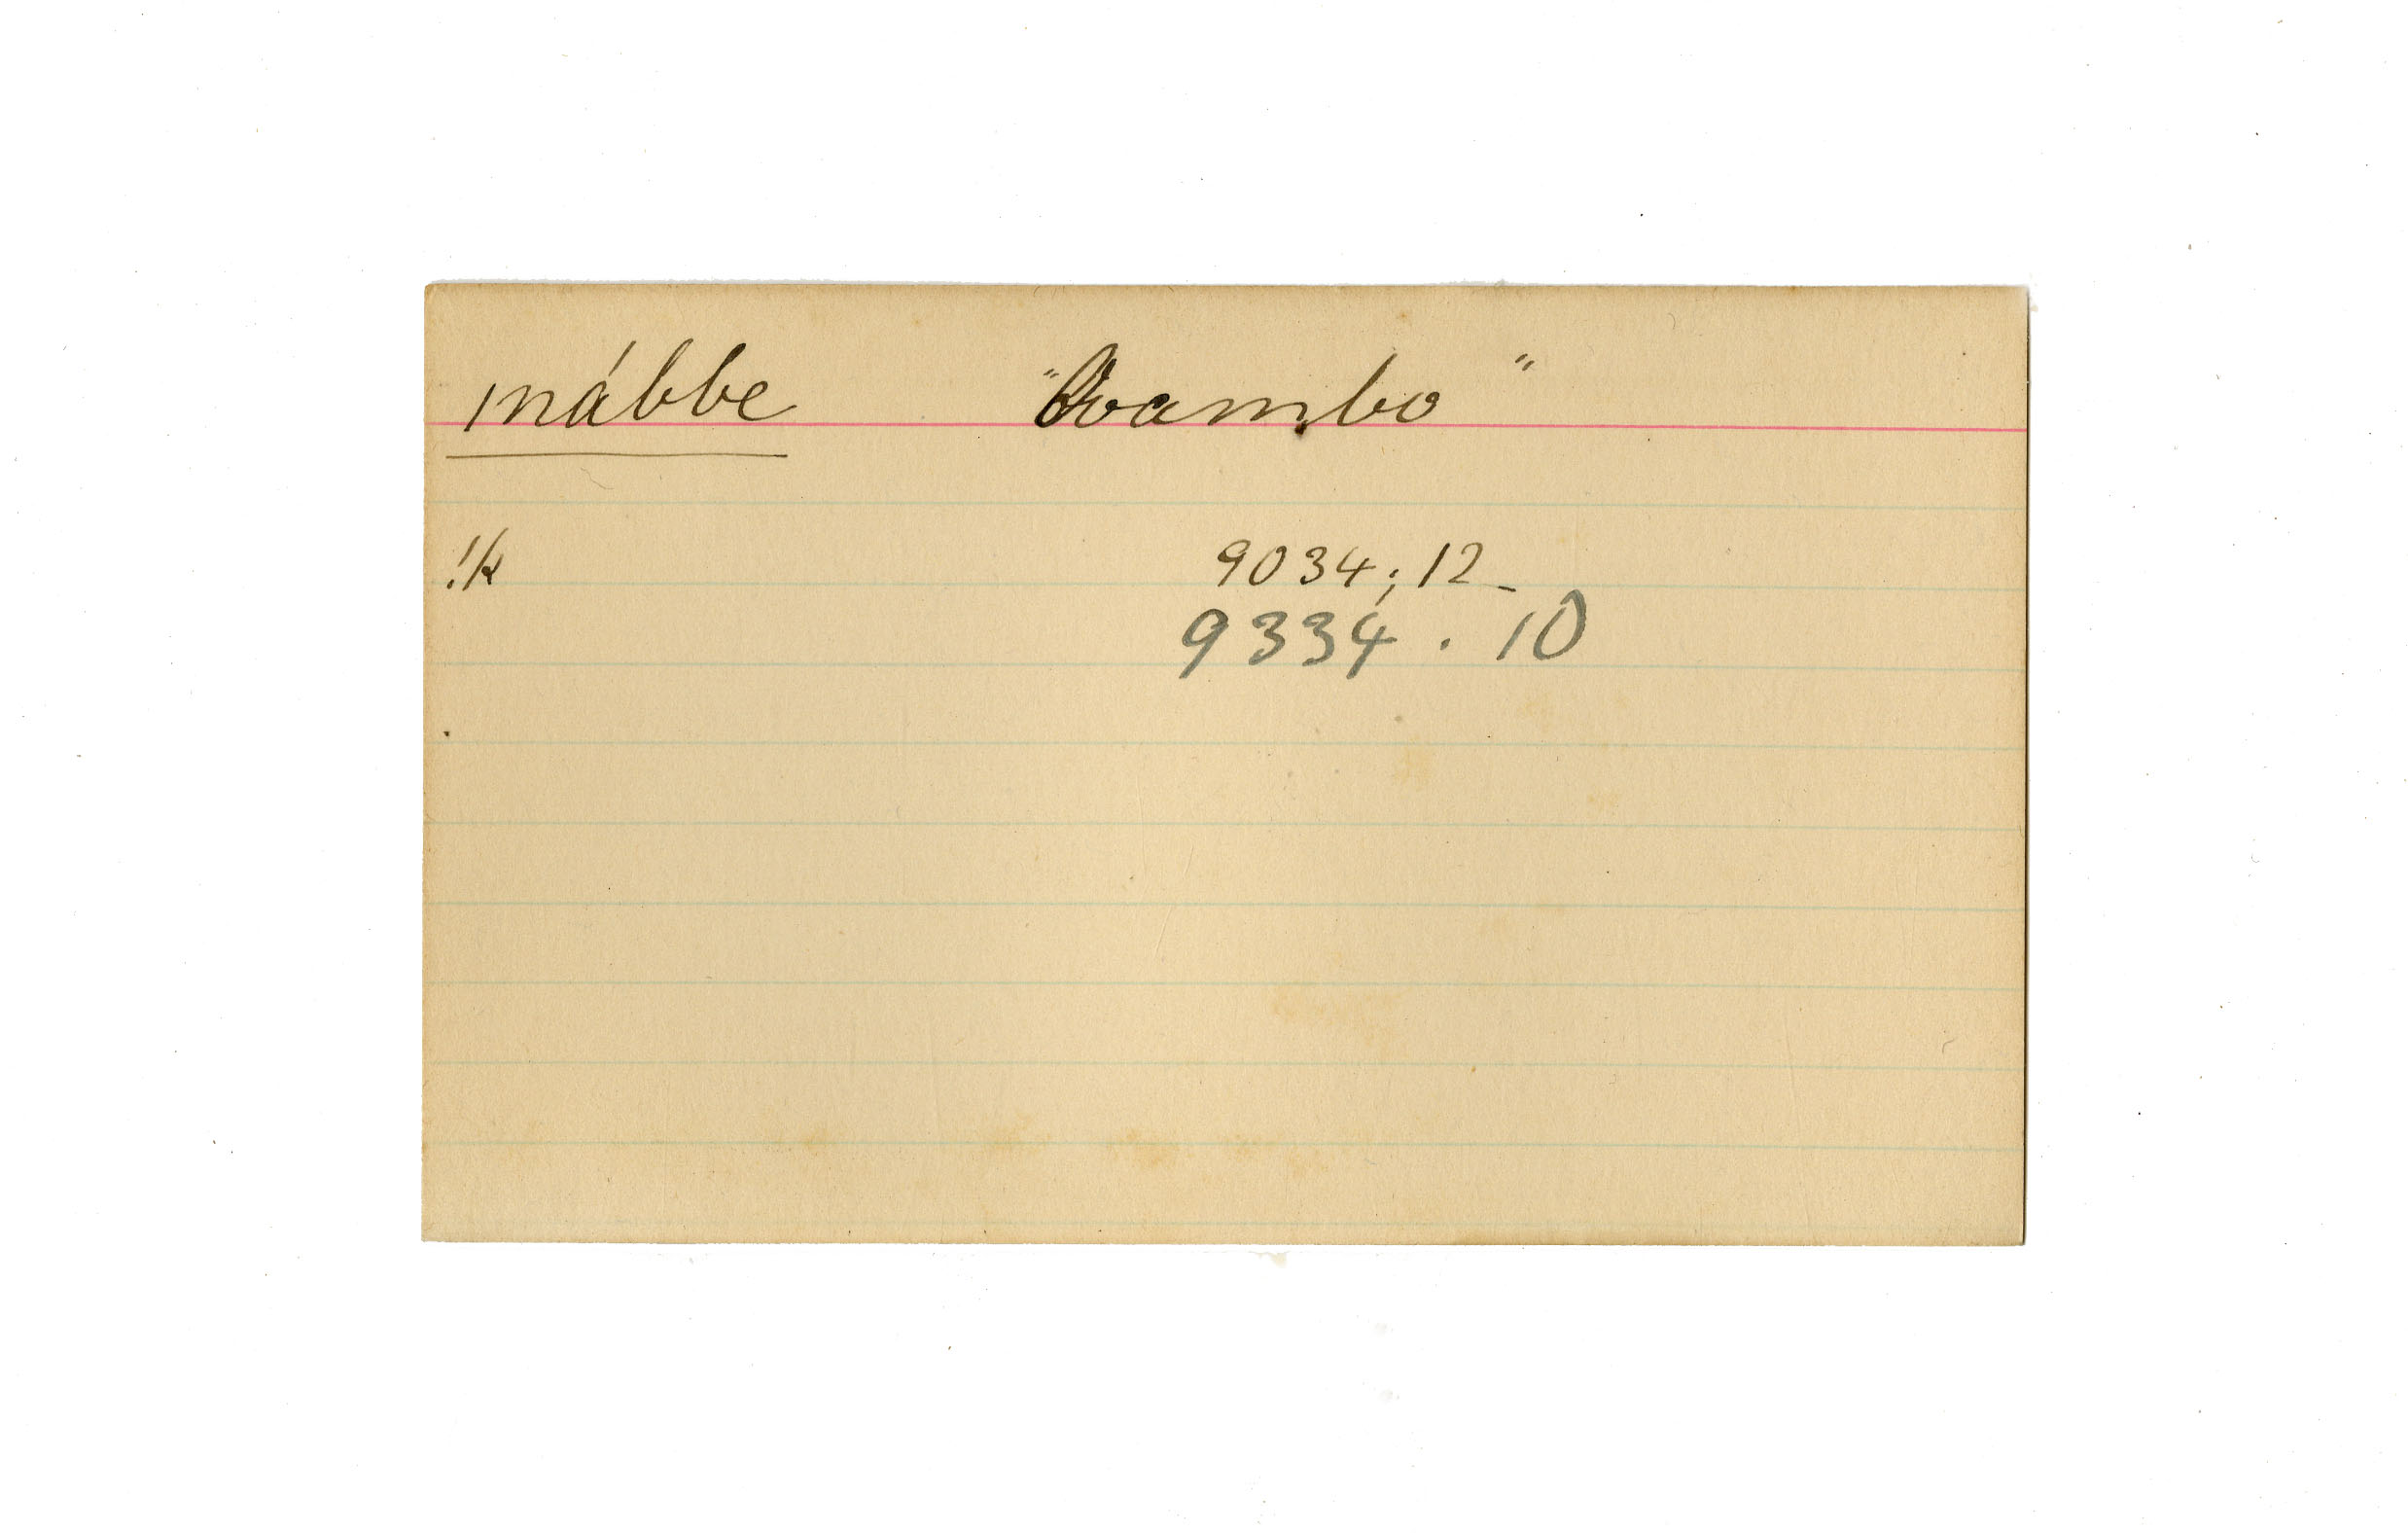 mábbe "Ovambo"
!k 9034; 12
9334 . 10